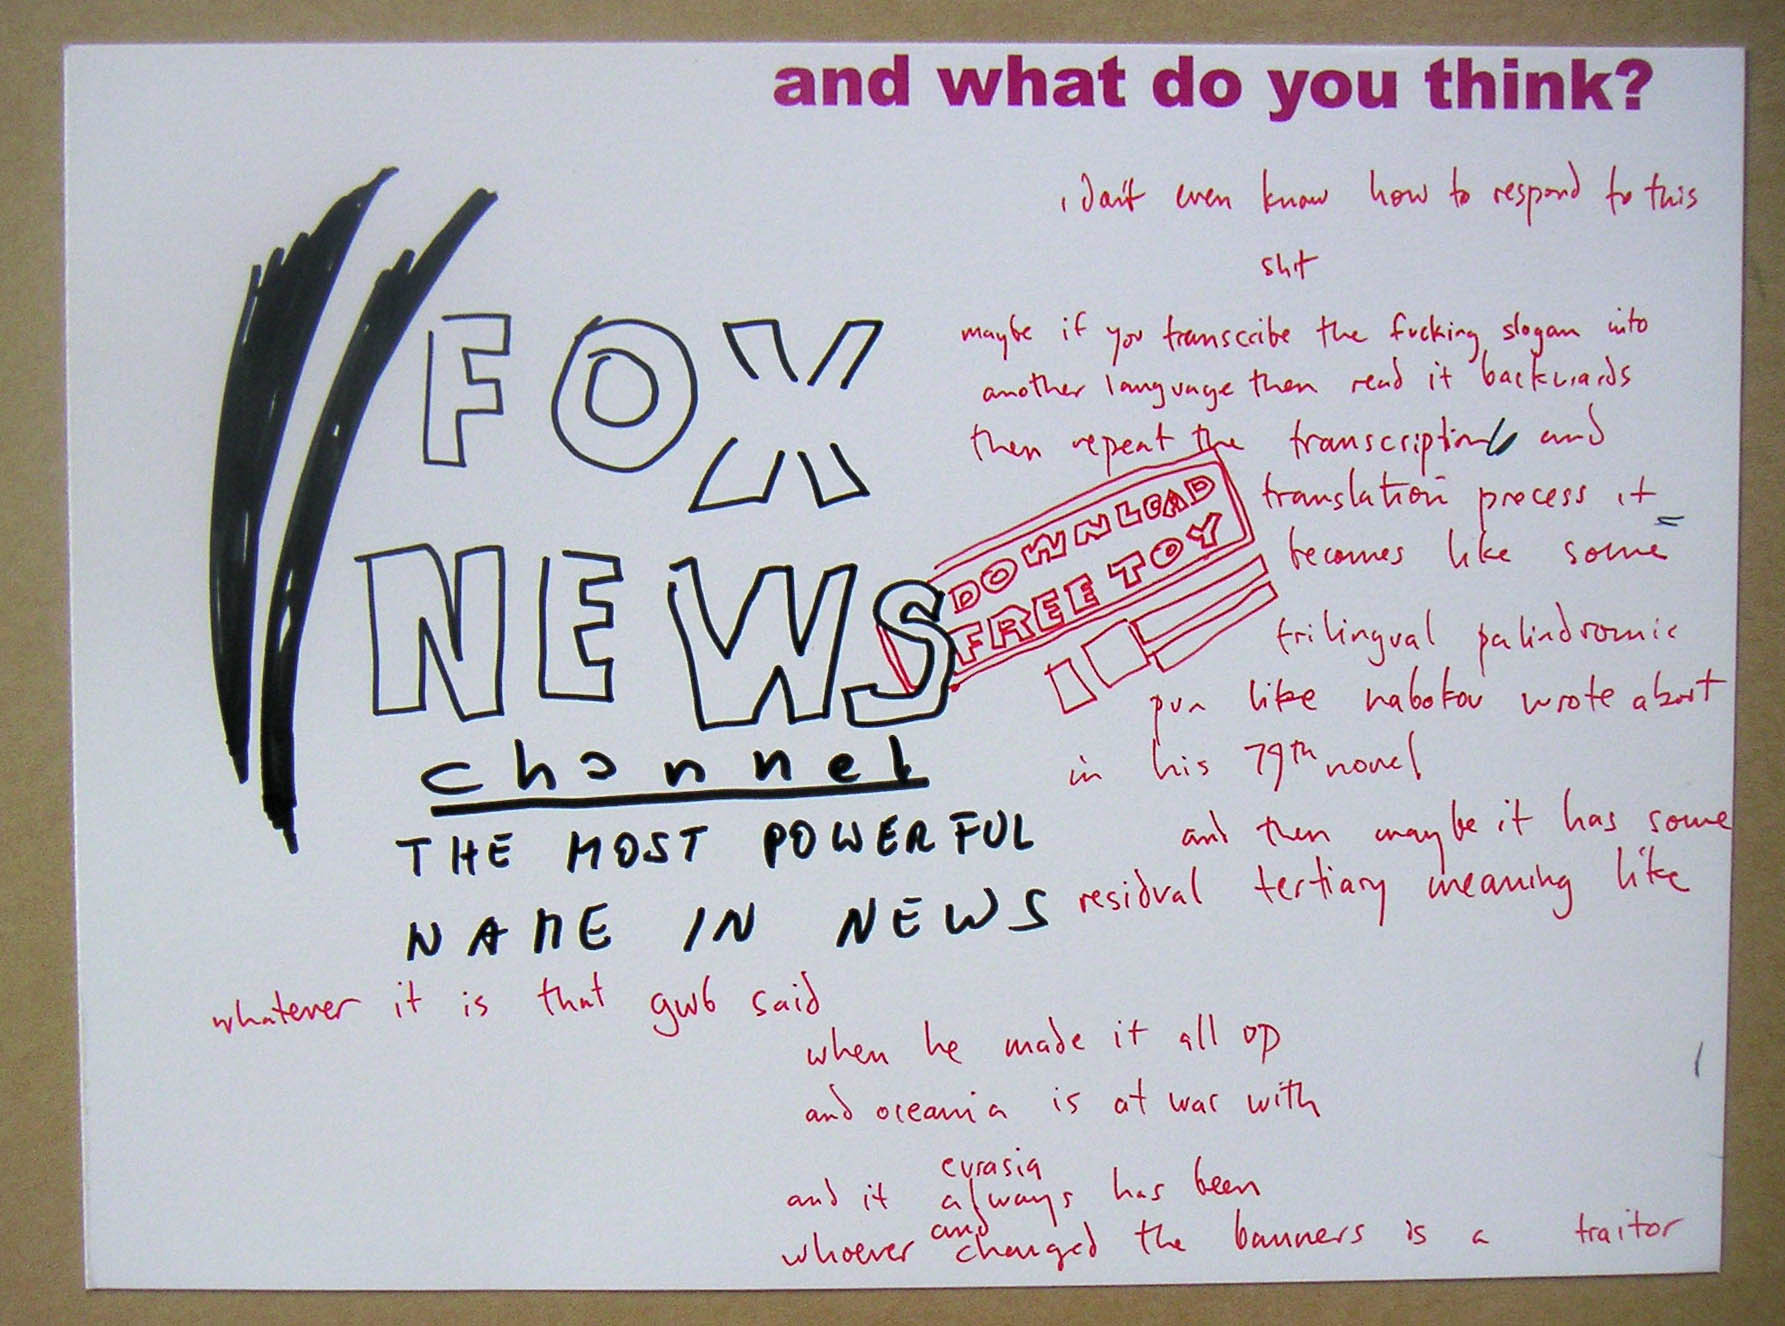 and what do you think?
i don't even know how to respond to this
shit
maybe if you transcribe the fucking slogan into
another language then read it backwards
then repeat the transcription and
translation process it
becomes like some
trilingual palindromic
pun like nabokov wrote about
in his 79th novel
and then maybe it has some
residual tertiary meaning like
whatever it is that gwb said
when he made it all up
and oceania is at war with
eurasia
and it always has been
and
whoever changed the banners is a traitor
FOX
NEWS
channel
THE MOST POWERFUL
NAME IN NEWS
DOWNLOAD
FREE TOY